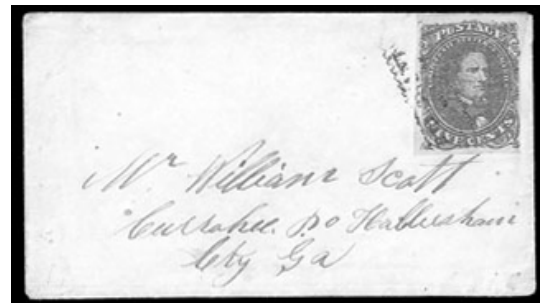 POSTAGE
FIVE CENTS
Mr William Scott
Currahee P.o Habersham
Cty Ga